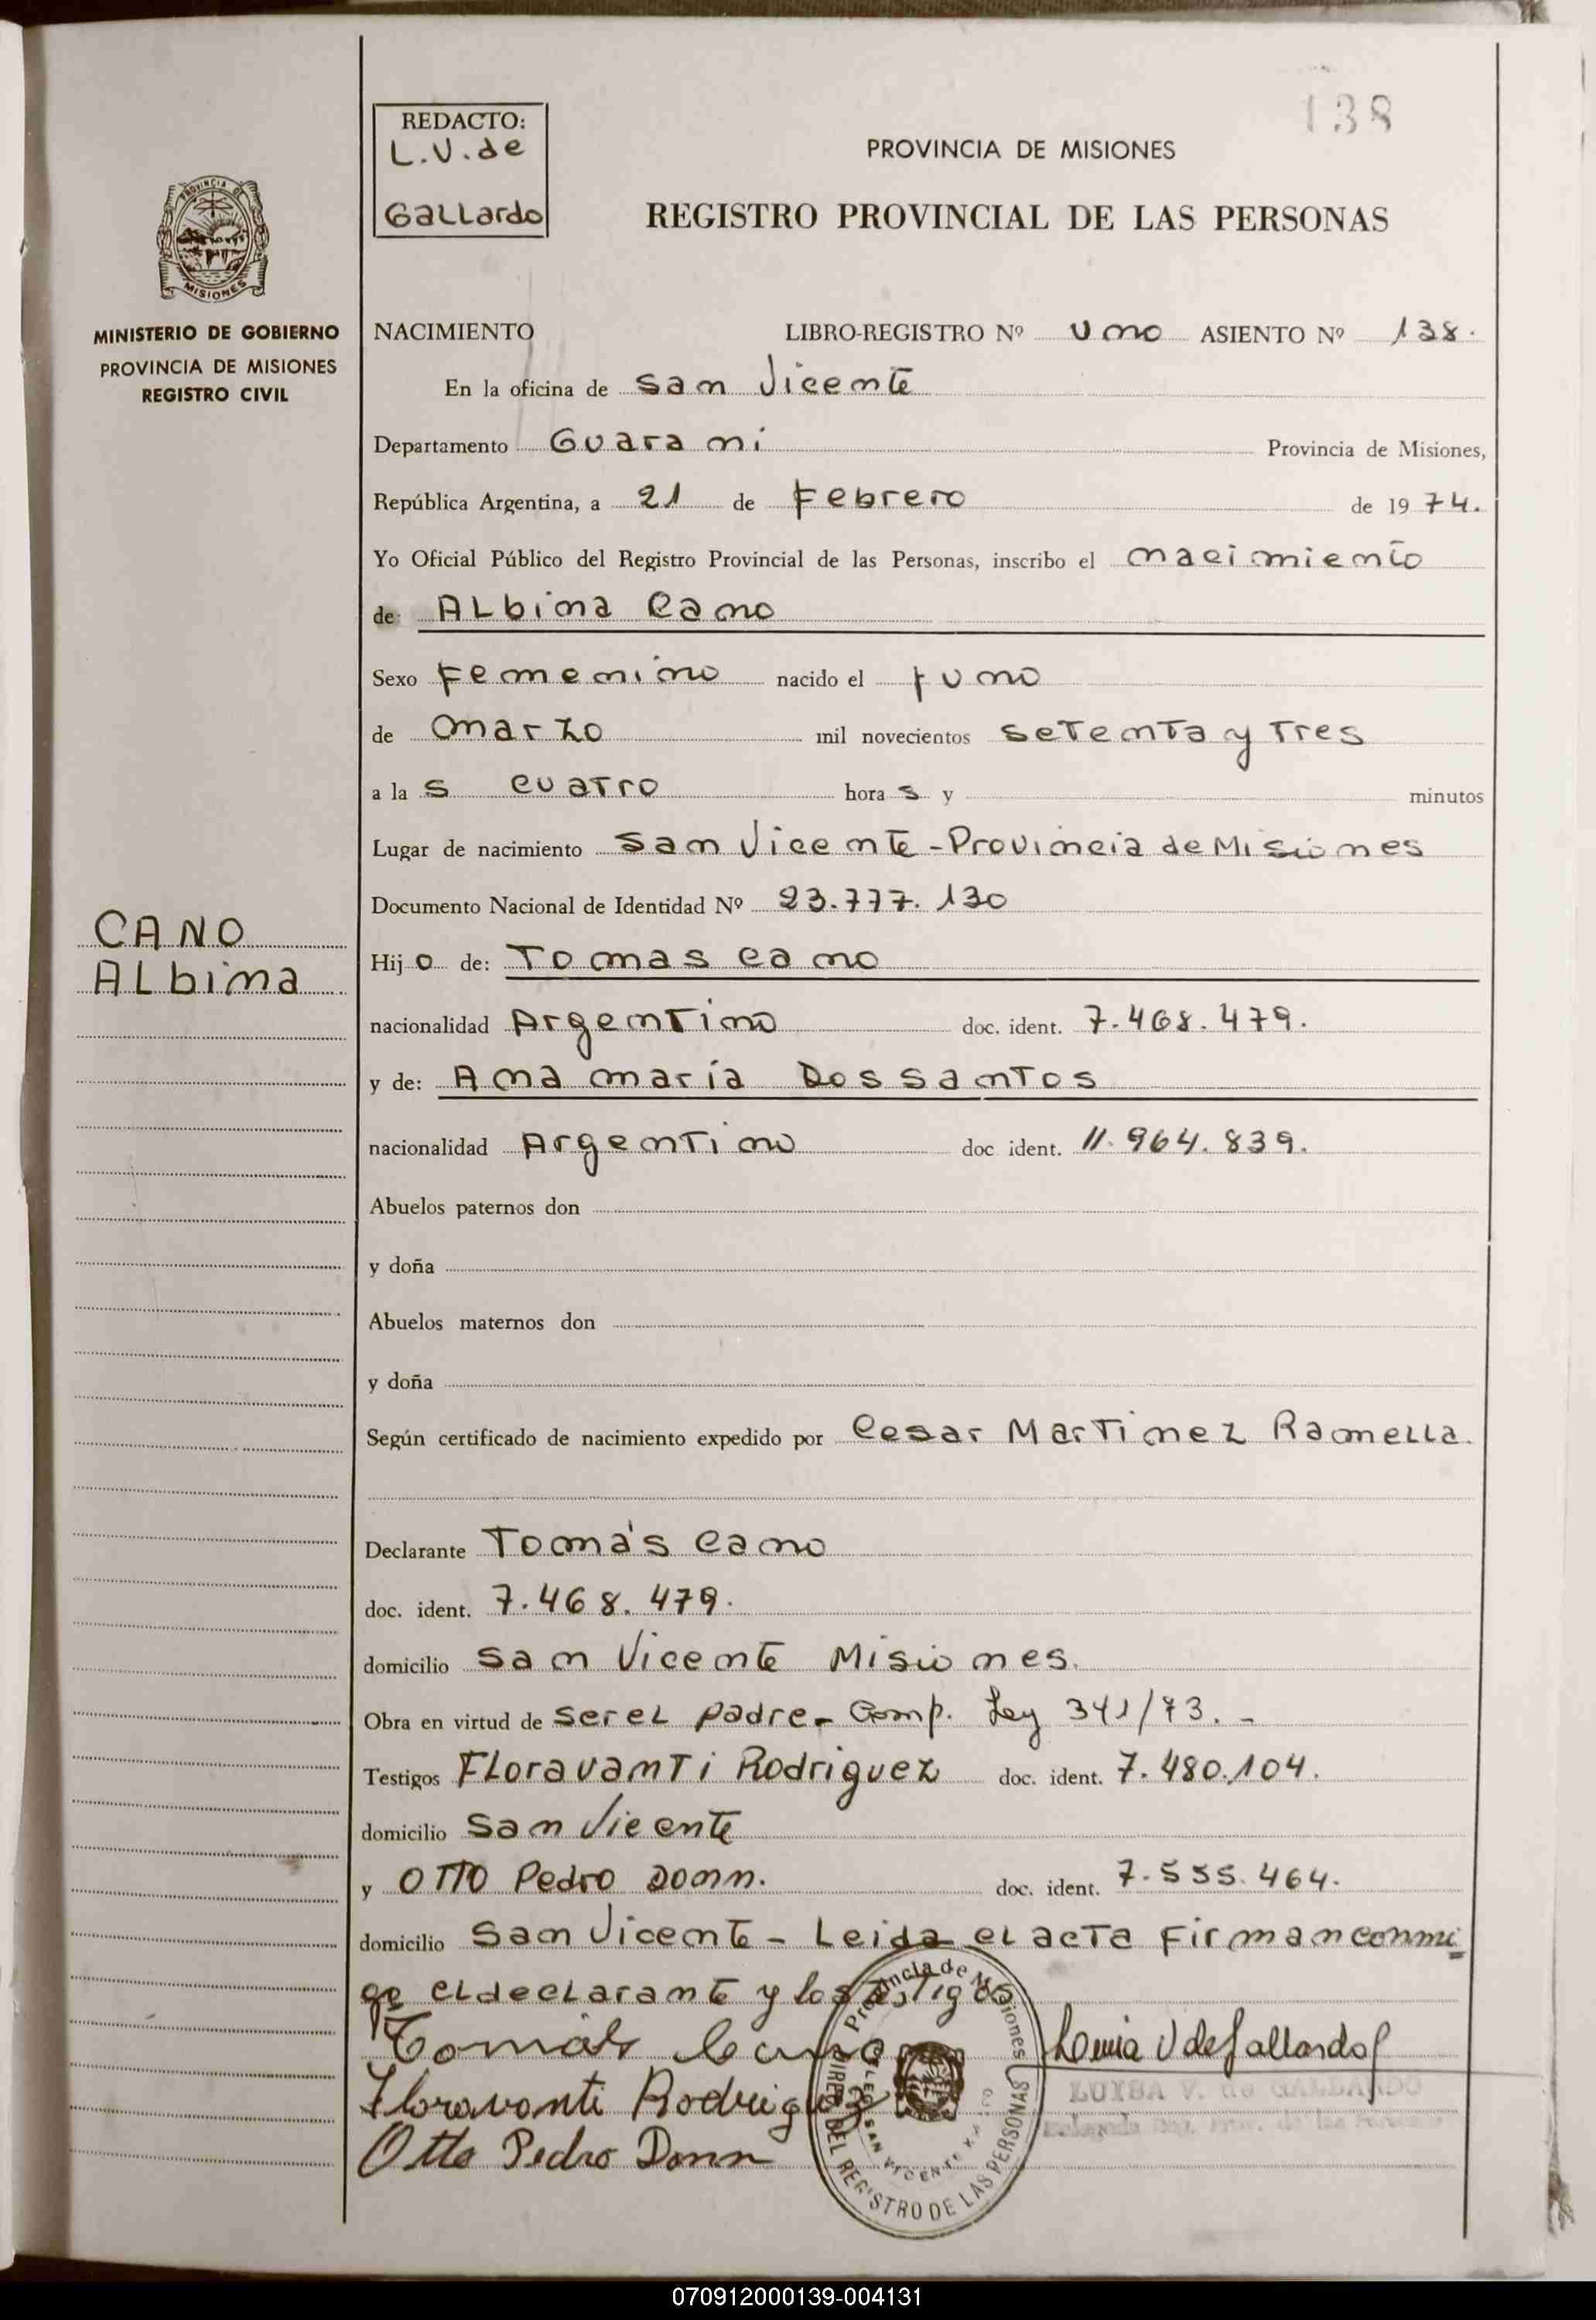 138
REDACTO:
L.V.de
Gallardo
PROVINCIA DE MISIONES
REGISTRO PROVINCIAL DE LAS PERSONAS
PROVINCIA DE
MISIONES
MINISTERIO DE GOBIERNO
PROVINCIA DE MISIONES
REGISTRO CIVIL
CANO
Albina
NACIMIENTO LIBRO-REGISTRO Nº Uno ASIENTO Nº 138.
En la oficina de San Vicente
Departamento Guarani Provincia de Misiones,
República Argentina, a 21 de Febrero de 1974.
Yo Oficial Público del Registro Provincial de las Personas, inscribo el nacimiento
de: Albina Cano
Sexo Femenino nacido el uno
de marzo mil novecientos setenta y tres
a las cuatro horas y minutos
Lugar de nacimiento San Vicente - Provincia de Misiones
Documento Nacional de Identidad Nº 23.777.130
Hijo de: Tomas Cano
nacionalidad Argentino doc. ident. 7.468.479.
y de: Ana maría Dos santos
nacionalidad Argentino doc ident. 11.964.839.
Abuelos paternos don
y doña
Abuelos maternos don
y doña
Según certificado de nacimiento expedido por Cesar Martinez Ramella.
Declarante Tomás Cano
doc. ident. 7.468.479.
domicilio San Vicente Misiones.
Obra en virtud de ser el padre - Comp. Ley 341/73. -
Testigos Floravanti Rodriguez doc. ident. 7.480.104.
domicilio San Vicente
y Otto Pedro Donn. doc. ident. 7.535.464.
domicilio San Vicente - Leida el acta firman conmi
go el declarante y los testigos
Tomás Cano
Floravanti Rodriguez
Otto Pedro Donn
Luisa V de Gallardo
LUYSA V. de GALLARDO
Provincia de Misiones
DEL REGISTRO DE LAS PERSONAS
SAN VICENTE
070912000139-004131